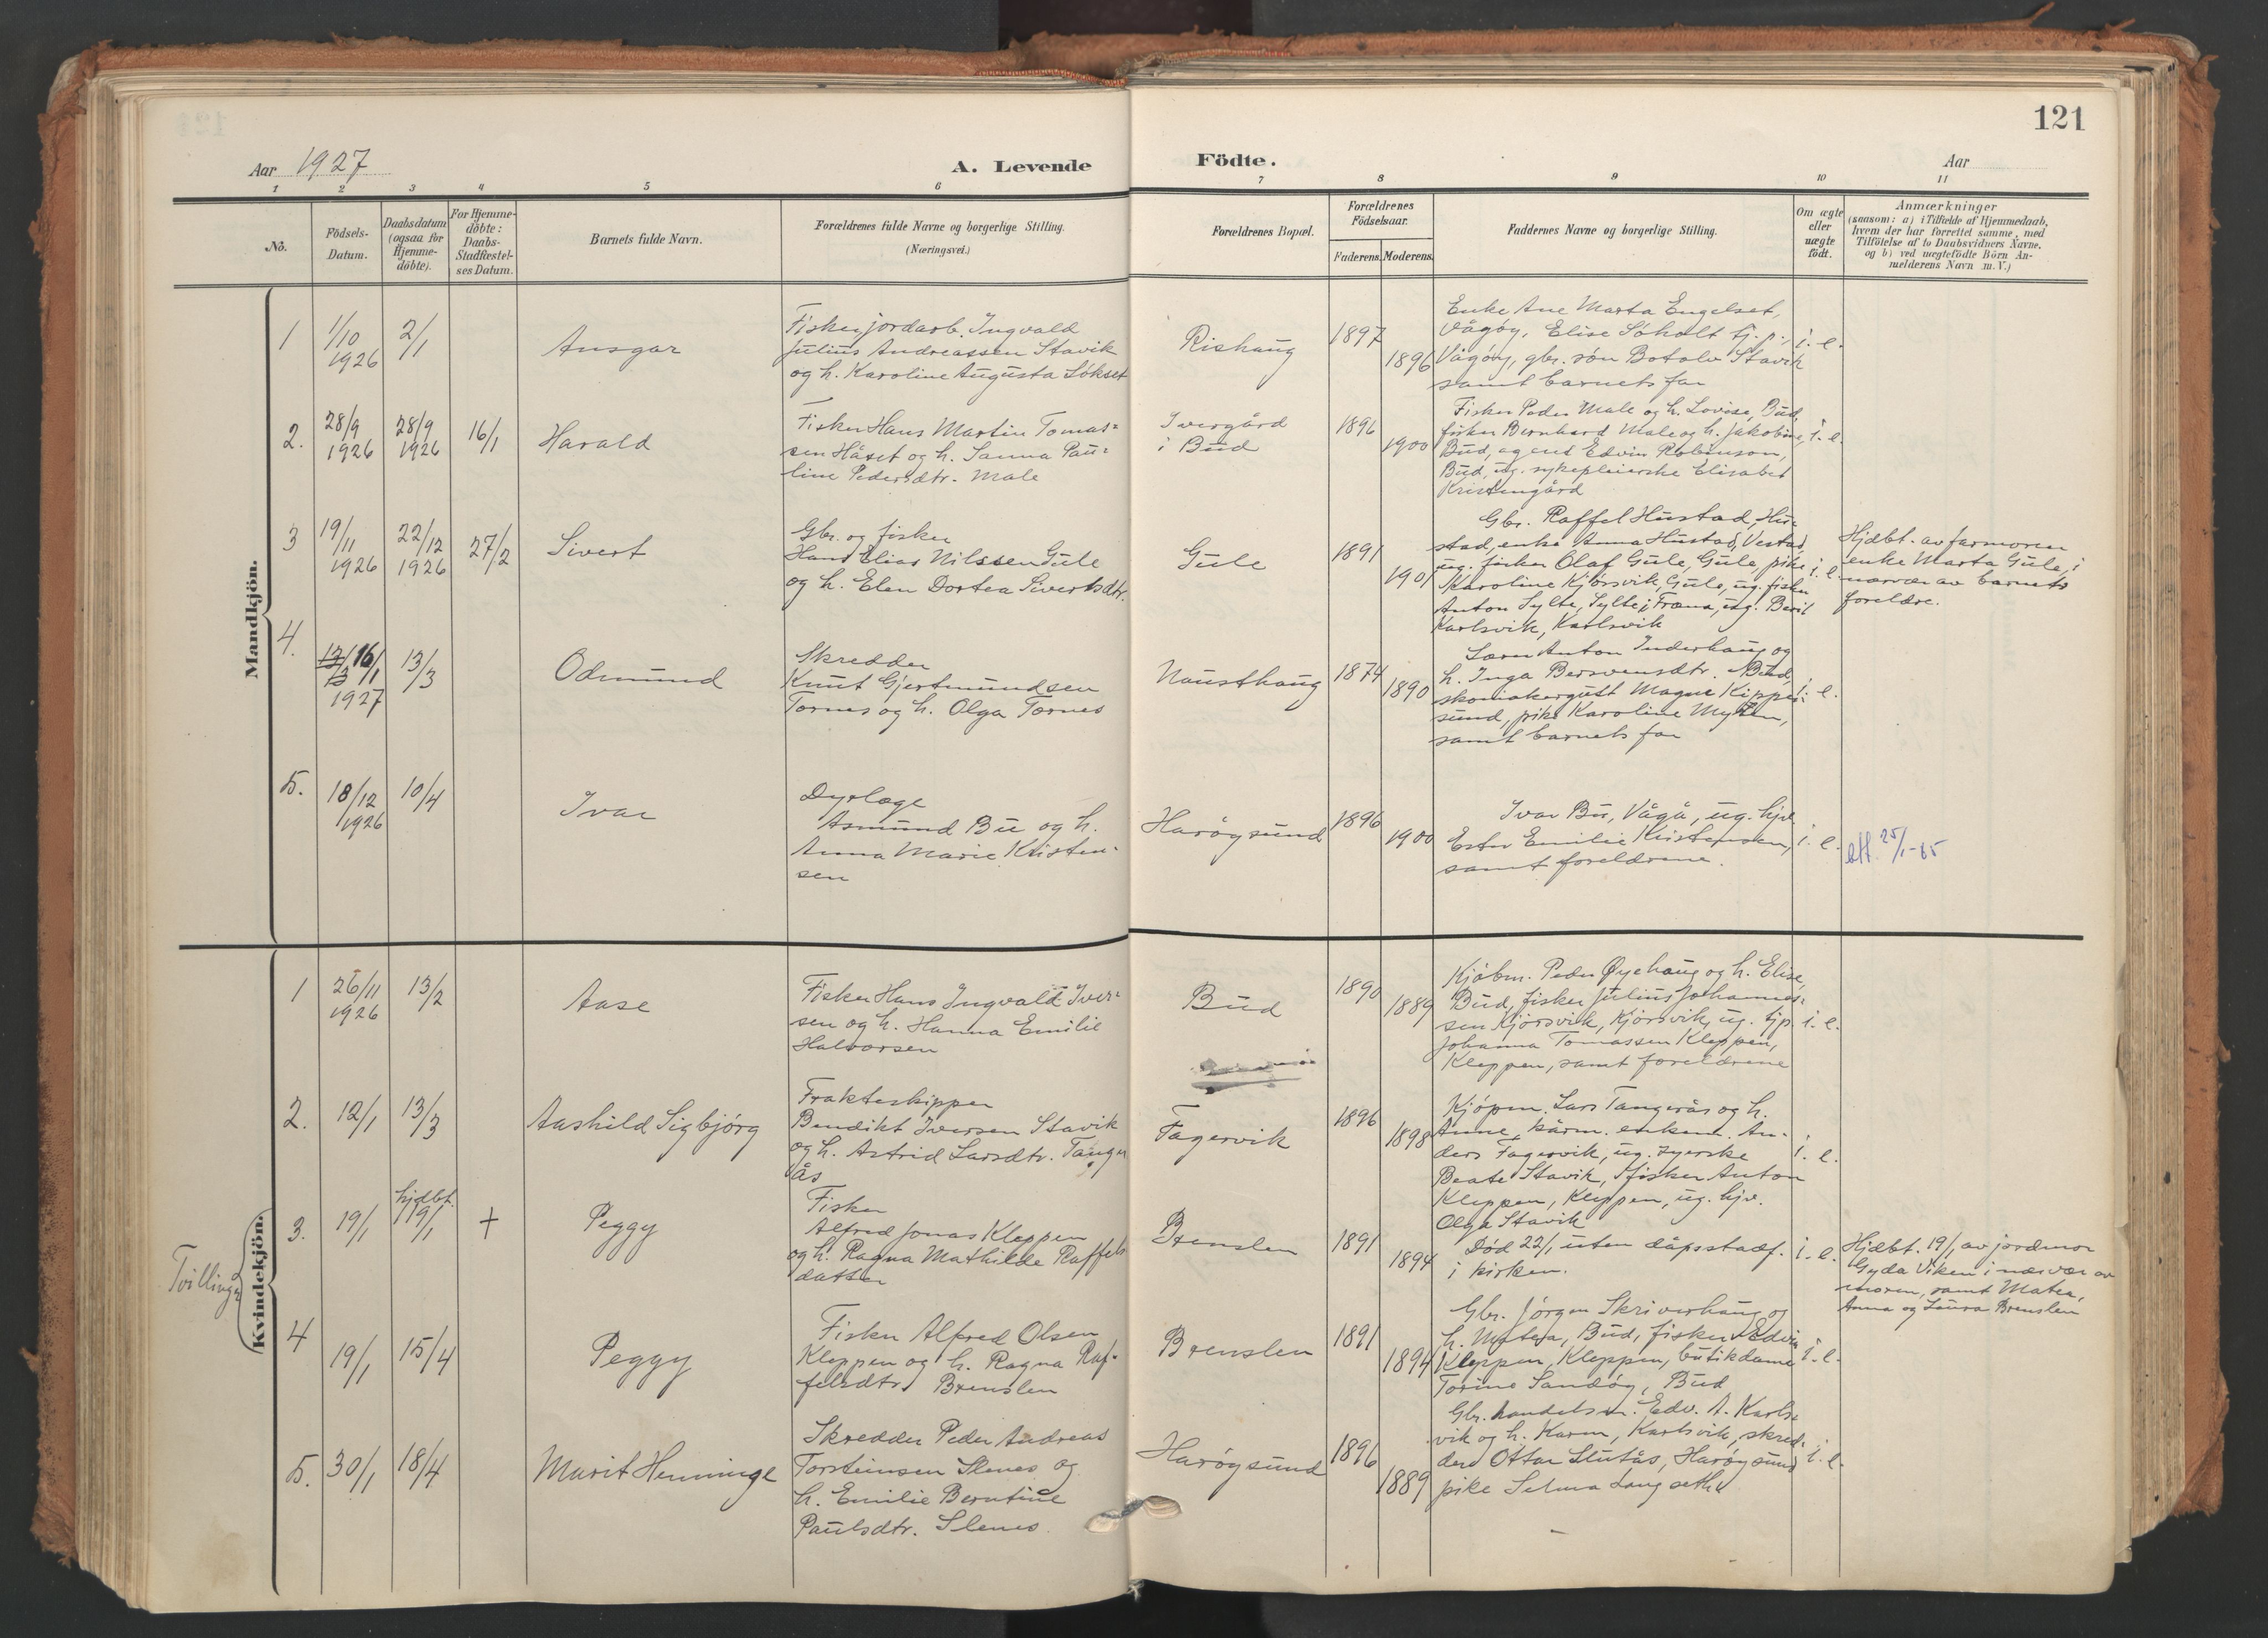 121
Aar 1927
A. Levende Födte.
Aar
1 2 3 4 5 6 7 8 9 10 11
No.
Födsels-
Datum.
Daabsdatum
(ogsaa for
Hjemme-
döbte).
For Hjemme-
döbte:
Daabs-
Stadfæstel-
ses Datum.
Barnets fulde Navn.
Forældrenes fulde Navne og borgerlige Stilling.
(Næringsvei.)
Forældrenes Bopæl.
Forældrenes
Födselsaar.
Faderens.
Moderens.
Faddernes Navne og borgerlige Stilling.
Om ægte
eller
uægte
födt.
Anmærkninger
(saasom: a) i Tilfælde af Hjemmedaab,
hvem der har forrettet samme, med
Tilföielse af to Daabsvidners Navne,
og b) ved uægtefödte Börn An-
melderens Navn m. V.)
Mandkjön.
1
1/10
1926
2/1
Ansgar
Fisker, jordarb. Ingvald
Julius Andreassen Stavik
og h. Karoline Augusta Sökset
Rishaug
1897
1896
Enke Ane Marta Engelset,
Vågöy, Elise Söholt tj. p.,
Vågöy, gbr. sön Botolv Stavik
samt barnets far
i. e.
2.
28/9
1926
28/9
1926
16/1
Harald
Fisker Hans Martin Tomas-
sen Håset og h. Sanna Pau-
line Pedersdtr. Male
Ivergård
i Bud
1896
1900
Fisker Peder Male og h. Lovise, Bud,
fisker Bernhard Male og h. Jakobine,
Bud, agent Edvin Robinson,
Bud, ug. sykepleierske Elisabet
Kristengård
i. e.
3
19/11
1926
22/12
1926
27/2
Sivert
Gbr. og fisker
Hans Elias Nilssen Gule
og h. Elen Dortea Sivertsdtr.
Gule
1891
1901
Gbr. Raffel Hustad, Hu-
stad, enke Anna Hustad, Vestad,
ug. fisker Olaf Gule, Gule, pike
Karoline Kjörsvik, Gule, ug. fisker
Anton Sylte, Sylte i Fræna, ug. Berit
Karlsvik, Karlsvik
i. e.
Hjdbt. av farmoren
enke Marta Gule, i
nærvær av barnets
forældre.
4.
16/1
1927
13/3
Odmund
Skredder
Knut Gjertmundsen
Tornes og h. Olga Tornes
Nausthaug
1874
1890
Anton Inderhaug og
h. Inga Bersvensdtr. Bud,
skomakergutt Magne
sund, pike Karoline Myren,
samt barnets far
i. e.
5.
18/12
1926
10/4
Ivar
Dyrlæge
Asmund Bu og h.
Anna Marie Kristen-
sen
Haröysund
1896
1900
Ivar Bu, Vågå, ug. hjv.
Ester Emilie Kristensen,
samt foreldrene.
i. e.
25/1-65
Kvindekjön.
1
26/11
1926
13/2
Aase
Fisker Hans Ingvald Iver-
sen og h. Hanna Emilie
Halvorsen
Bud
1890
1889
Kjöbm. Peder Øyehaug og h. Elise,
Bud, fisker Julius Johannes-
sen Kjörsvik, Kjörsvik, ug. tjp.
Johanna Tomassen Kleppen,
Kleppen, samt foreldrene
i. e.
2.
12/1
13/3
Aashild Sigbjörg
Frakteskipper
Bendikt Iversen Stavik
og h. Astrid Larsdtr. Tanger
ås
Fagervik
1896
1898
Kjöpm. Lars Tangerås og h.
Anne, kårm. enkem. An-
ders Fagervik, ug. syerske
Beate Stavik, fisker Anton
Kleppen, Kleppen, ug. hjv.
Olga Stavik
i. e.
Tvillinger
3.
19/1
hjdbt.
19/1
+
Peggy
Fisker
Alfred Jonas Kleppen
og h. Ragna Mathilde Raffels
datter
Brenslen
1891
1894
Död 22/1 uten dåpsstadf.
i kirken.
i. e.
Hjdbt. 19/1 av jordmor
Gyda Viken i nærvær av
moren, samt Matea,
Anna og Laura Brenslen
4
19/1
15/4
Peggy
Fisker Alfred Olsen
Kleppen og h. Ragna Raf-
felsdtr. Brenslen
Brenslen
1891
1894
Gbr. Jörgen Skriverhaug og
h. Matea, Bud, fisker Edvin
Kleppen, Kleppen, butikdame
Torine Sandöy, Bud
i. e.
5.
30/1
18/4
Marit Henninge
Skredder Peder Andreas
Torsteinsen Slenes og
h. Emilie Berntine
Paulsdtr. Slenes.
Haröysund
1896
1889
Gbr. handelsm. Edv. A. Karls-
vik og h. Karen, Karlsvik, skred-
der Ottar Slutås, Haröysund
pike Selma Langseth
i. e.